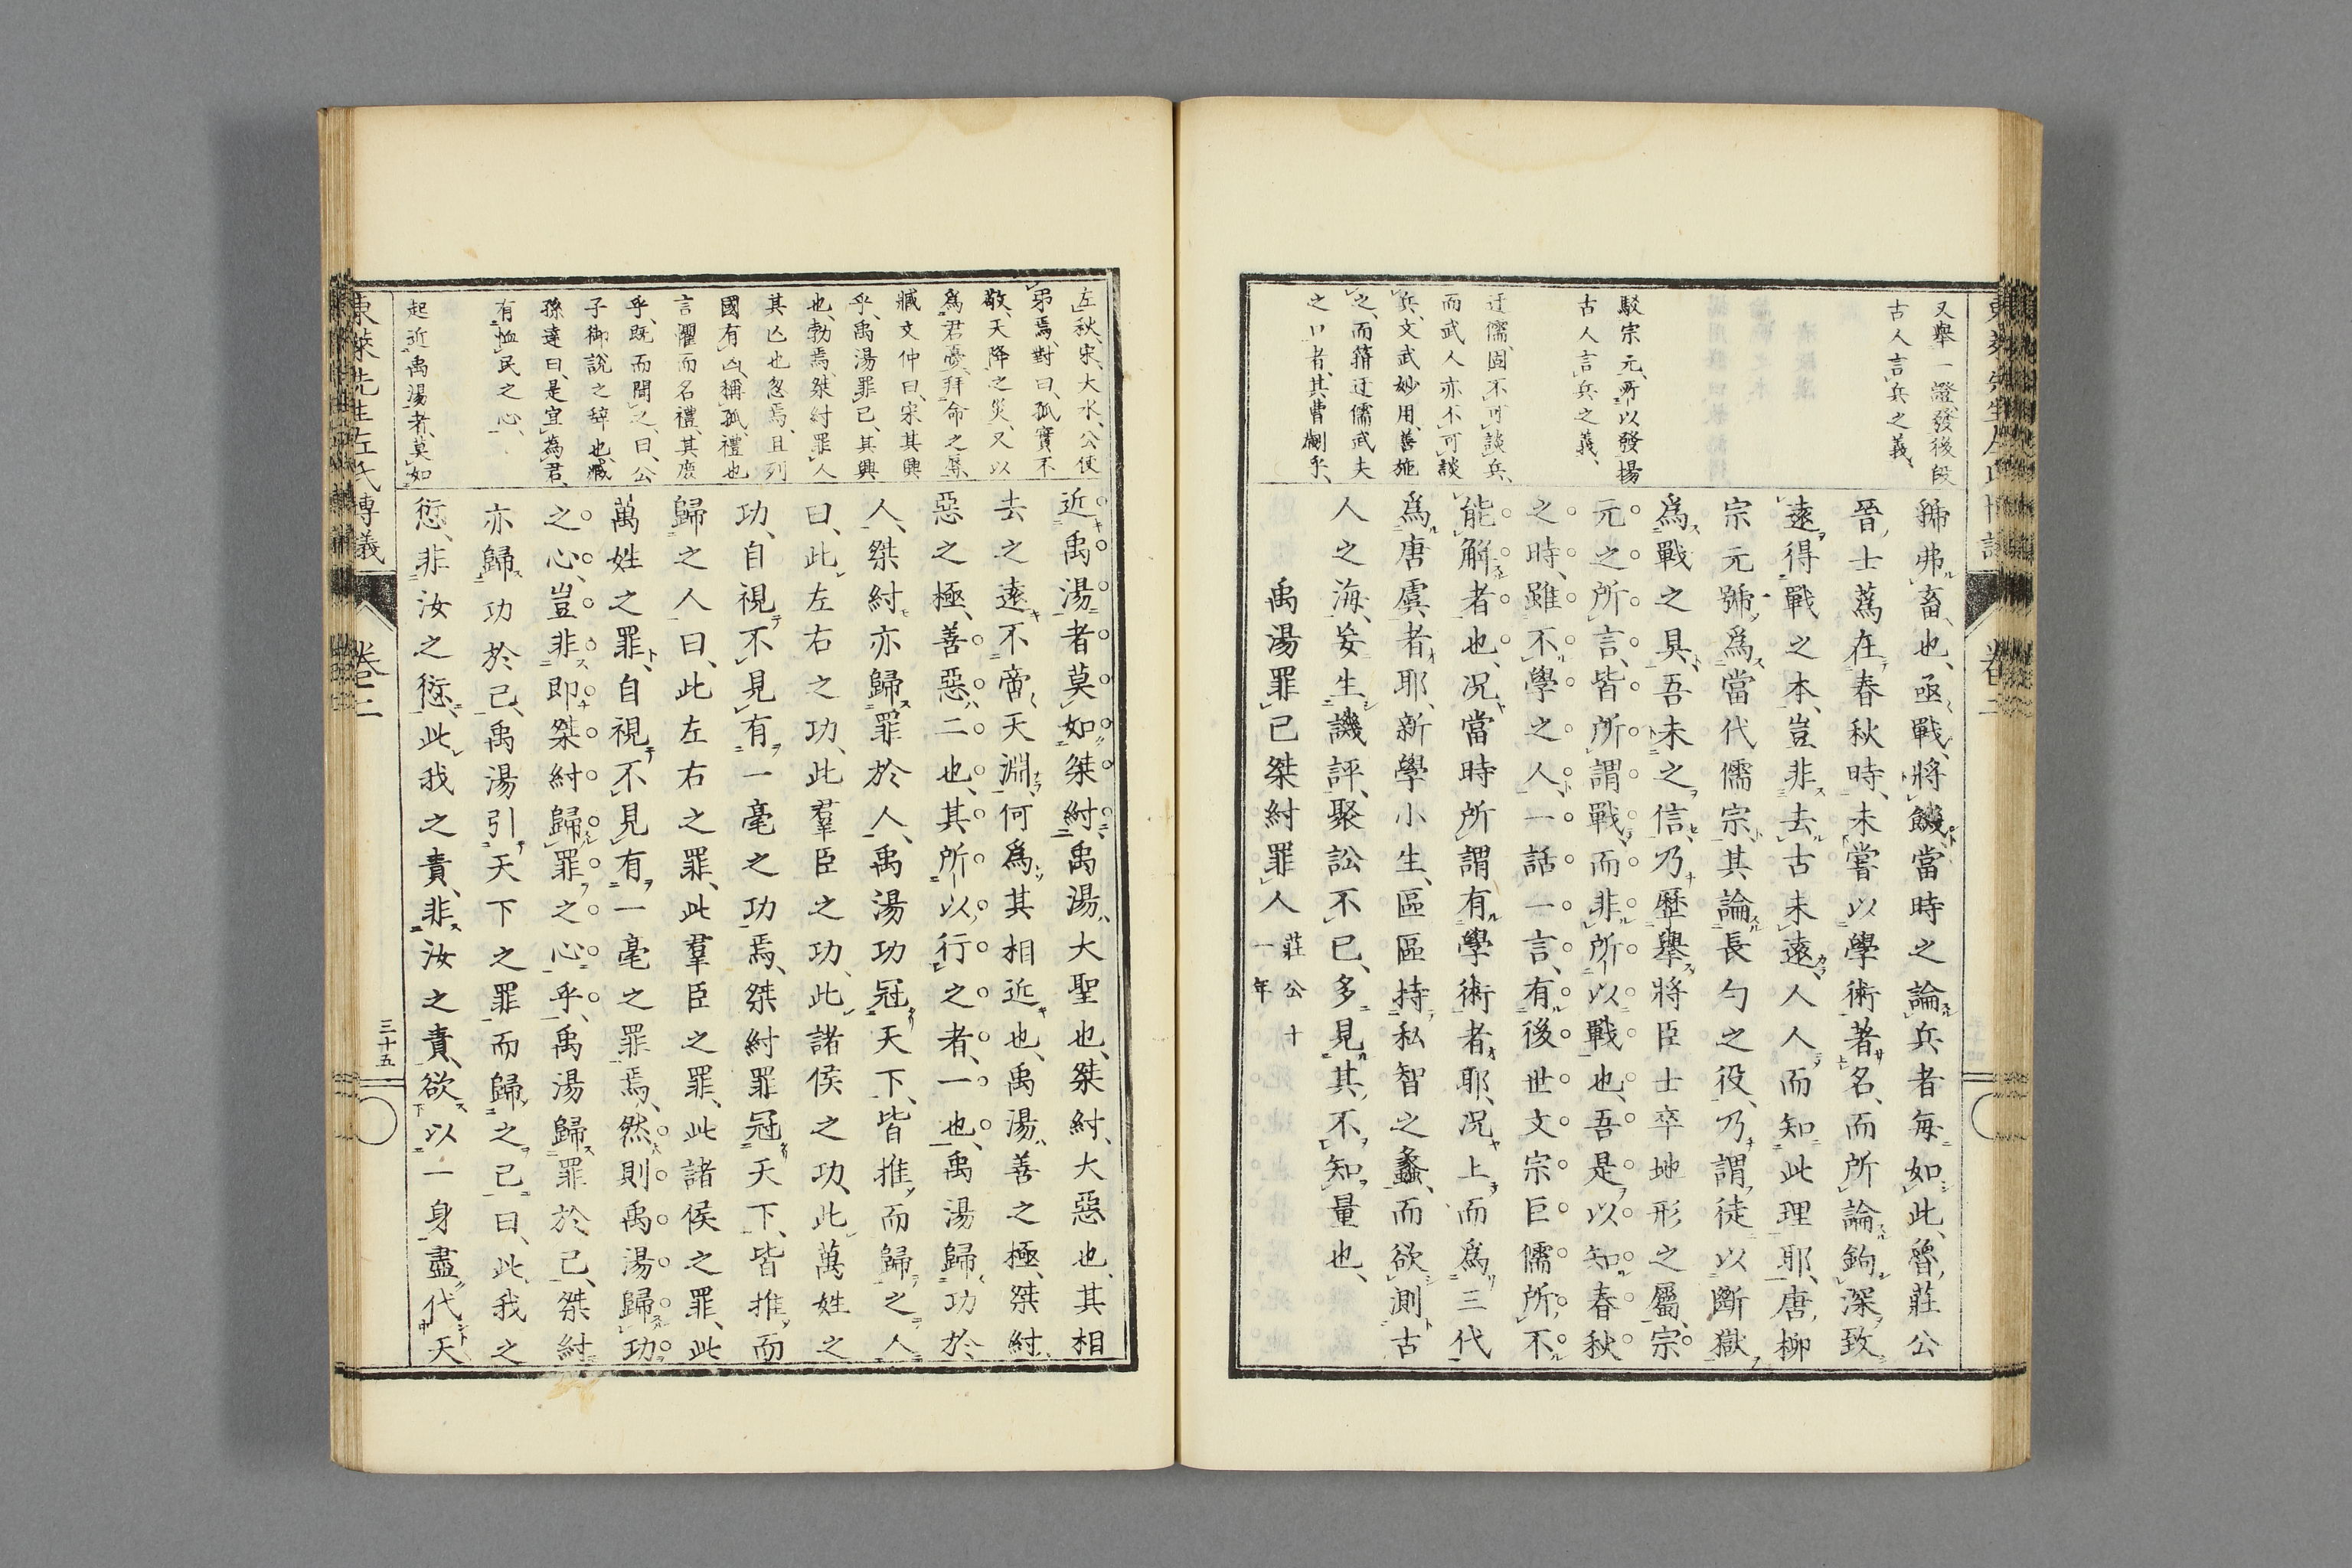 又舉一證、發後段
古人言兵之義、
駁宗元、所以發揚
古人言兵之義、
迂儒、固不可談兵、
而武人亦不可談
兵、文武妙用、善施
之、而籍迂儒武夫
之口者、其曹劌乎、
虢弗畜也、亟戰、將饑、當時之論兵者每如此、魯莊公
晉士蒍在春秋時、未嘗以學術著名、而所論鉤深致
遠、得戰之本、豈非去古未遠、人人而知此理耶、唐柳
宗元號爲當代儒宗、其論長勺之役、乃謂徒以斷獄
爲戰之具、吾未之信、乃歷舉將臣士卒地形之屬、宗
元之所言、皆所謂戰、而非所以戰也、吾是以知春秋
之時、雖不學之人、一話一言、有後世文宗巨儒所不
能解者也、況當時所謂有學術者耶、況上而爲三代
爲唐虞者耶、新學小生、區區持私智之蠡、而欲測古
人之海、妄生譏評、聚訟不已、多見其不知量也、
禹湯罪已桀紂罪人 莊公十一年
左、秋、宋、大水、公使
弟焉、對曰、孤實不
敬、天降之災、又以
爲君憂、拜命之辱、
臧文仲曰、宋其興
乎、禹湯罪已、其興
也、勃焉、桀紂罪人
其亡也忽焉、且列
國有凶、稱孤、禮也
言懼而名禮、其庶
乎、既而聞之、曰、公
子御說之辭也、臧
孫達曰、是宜爲君、
有恤民之心、
起近禹湯者、莫如
近禹湯者莫如桀紂、禹湯、大聖也、桀紂、大惡也、其相
去之遠、不啻天淵、何爲其相近也、禹湯、善之極、桀紂、
惡之極、善惡、二也、其所以行之者、一也、禹湯歸功於
人、桀紂亦歸罪於人、禹湯功冠天下、皆推而歸之人、
曰、此左右之功、此羣臣之功、此諸侯之功、此萬姓之
功、自視不見有一毫之功焉、桀紂罪冠天下、皆推而
歸之人、曰、此左右之罪、此羣臣之罪、此諸侯之罪、此
萬姓之罪、自視不見有一毫之罪焉、然則禹湯歸功
之心、豈非即桀紂歸罪之心乎、禹湯歸罪於己、桀紂
亦歸功於己、禹湯引天下之罪而歸之己、曰、此我之
愆、非汝之愆、此我之責、非汝之責、欲以一身盡代天
東萊先生左氏博議 卷二 三十五